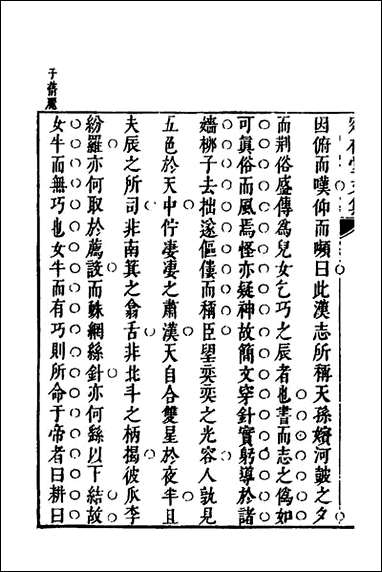 因俯而嘆仰而嚬曰此漢志所稱天孫嬪河皷之夕
而荆俗盛傳爲兒女乞巧之辰者也書而志之僞如
可眞俗而風焉怪亦疑神故簡文穿針實躬導於諸
嬙柳子去拙遂傴僂而稱臣望奕奕之光容人孰見
五色於天中佇凄凄之肅漢天自合雙星於夜半且
夫辰之所司非南箕之翕舌非北斗之柄揭彼瓜李
紛羅亦何取於薦設而蛛網絲針亦何繇以下結故
女牛而無巧也女牛而有巧則所命于帝者曰耕曰
子蒨麗